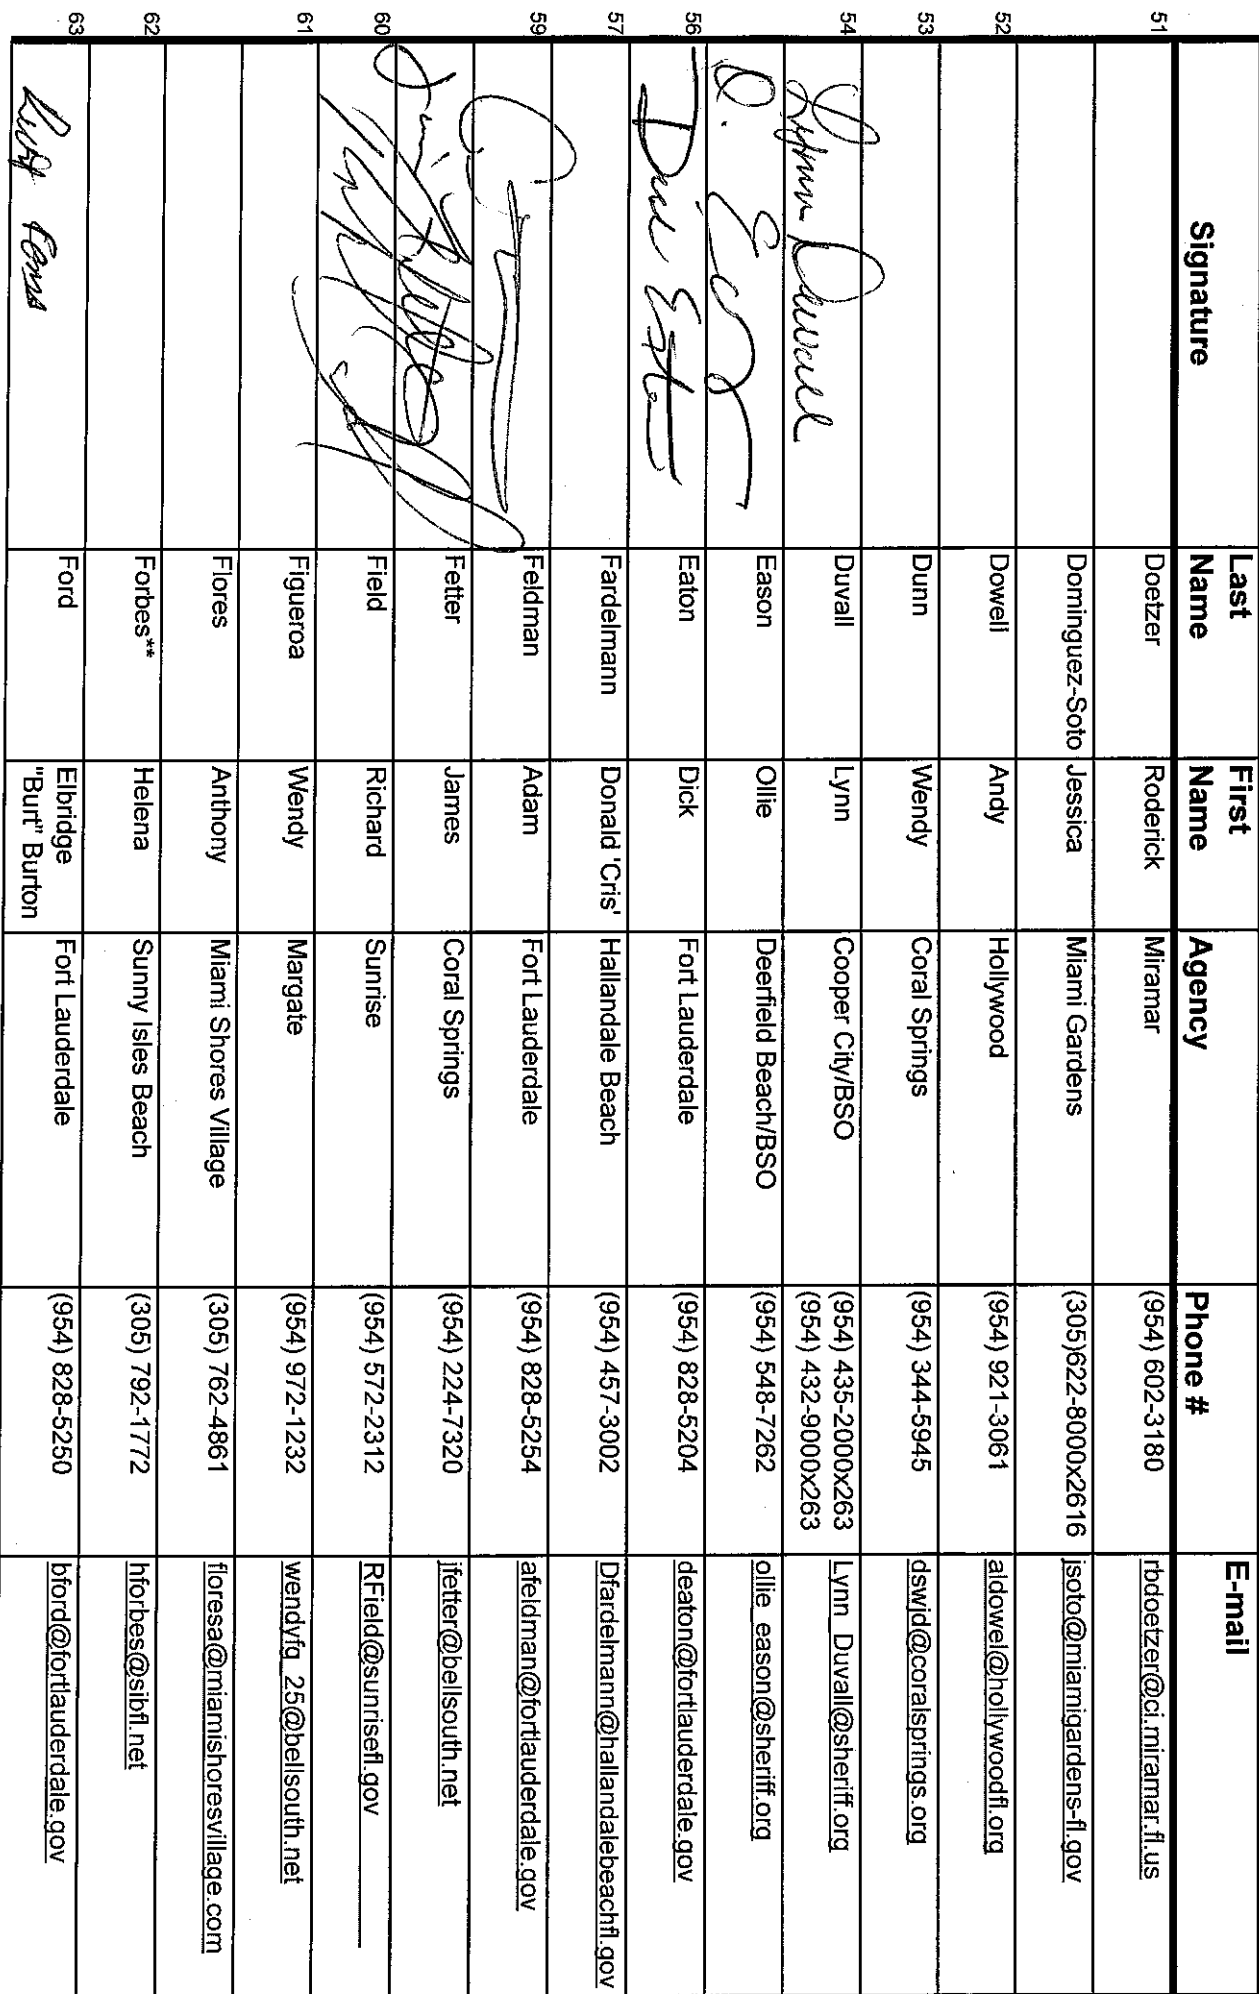 Signature Last Name First Name Agency Phone # E-mail
51 Doetzer Roderick Miramar (954) 602-3180 rbdoetzer@ci.miramar.fl.us
Dominguez-Soto Jessica Miami Gardens (305)622-8000x2616 jsoto@miamigardens-fl.gov
52 Dowell Andy Hollywood (954) 921-3061 aldowel@hollywoodfl.org
53 Dunn Wendy Coral Springs (954) 344-5945 dswjd@coralsprings.org
54 Lynn Duvall Duvall Lynn Cooper City/BSO (954) 435-2000x263 Lynn_Duvall@sheriff.org
(954) 432-9000x263
O. Eason Ollie Deerfield Beach/BSO (954) 548-7262 ollie_eason@sheriff.org
56 Eaton Dick Fort Lauderdale (954) 828-5204 deaton@fortlauderdale.gov
57 Fardelmann Donald 'Cris' Hallandale Beach (954) 457-3002 Dfardelmann@hallandalebeachfl.gov
59 Feldman Adam Fort Lauderdale (954) 828-5254 afeldman@fortlauderdale.gov
Fetter James Coral Springs (954) 224-7320 jfetter@bellsouth.net
60 Field Richard Sunrise (954) 572-2312 RField@sunrisefl.gov
61 Figueroa Wendy Margate (954) 972-1232 wendyfg_25@bellsouth.net
Flores Anthony Miami Shores Village (305) 762-4861 floresa@miamishoresvillage.com
62 Forbes** Helena Sunny Isles Beach (305) 792-1772 hforbes@sibfl.net
63 Ford Elbridge Fort Lauderdale (954) 828-5250 bford@fortlauderdale.gov
"Burt" Burton